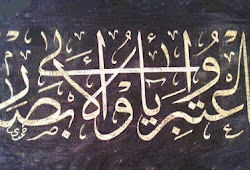 اعتبروا يا أولي الأبصار